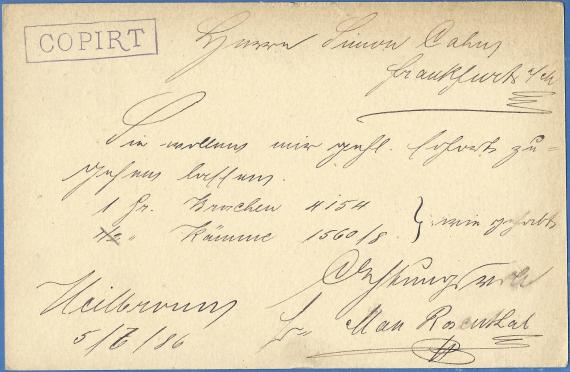 COPIRT
Herrn Simon Cahn
Frankfurt a/M
Sie wollen mir gefl. sofort zu-
gehen lassen.
1 Gr. Broschen 4154
1/2 " Kämme 1560/8 } wie gehabt
Achtungsvoll
Heilbronn
5/7/86
Max Rosenthal